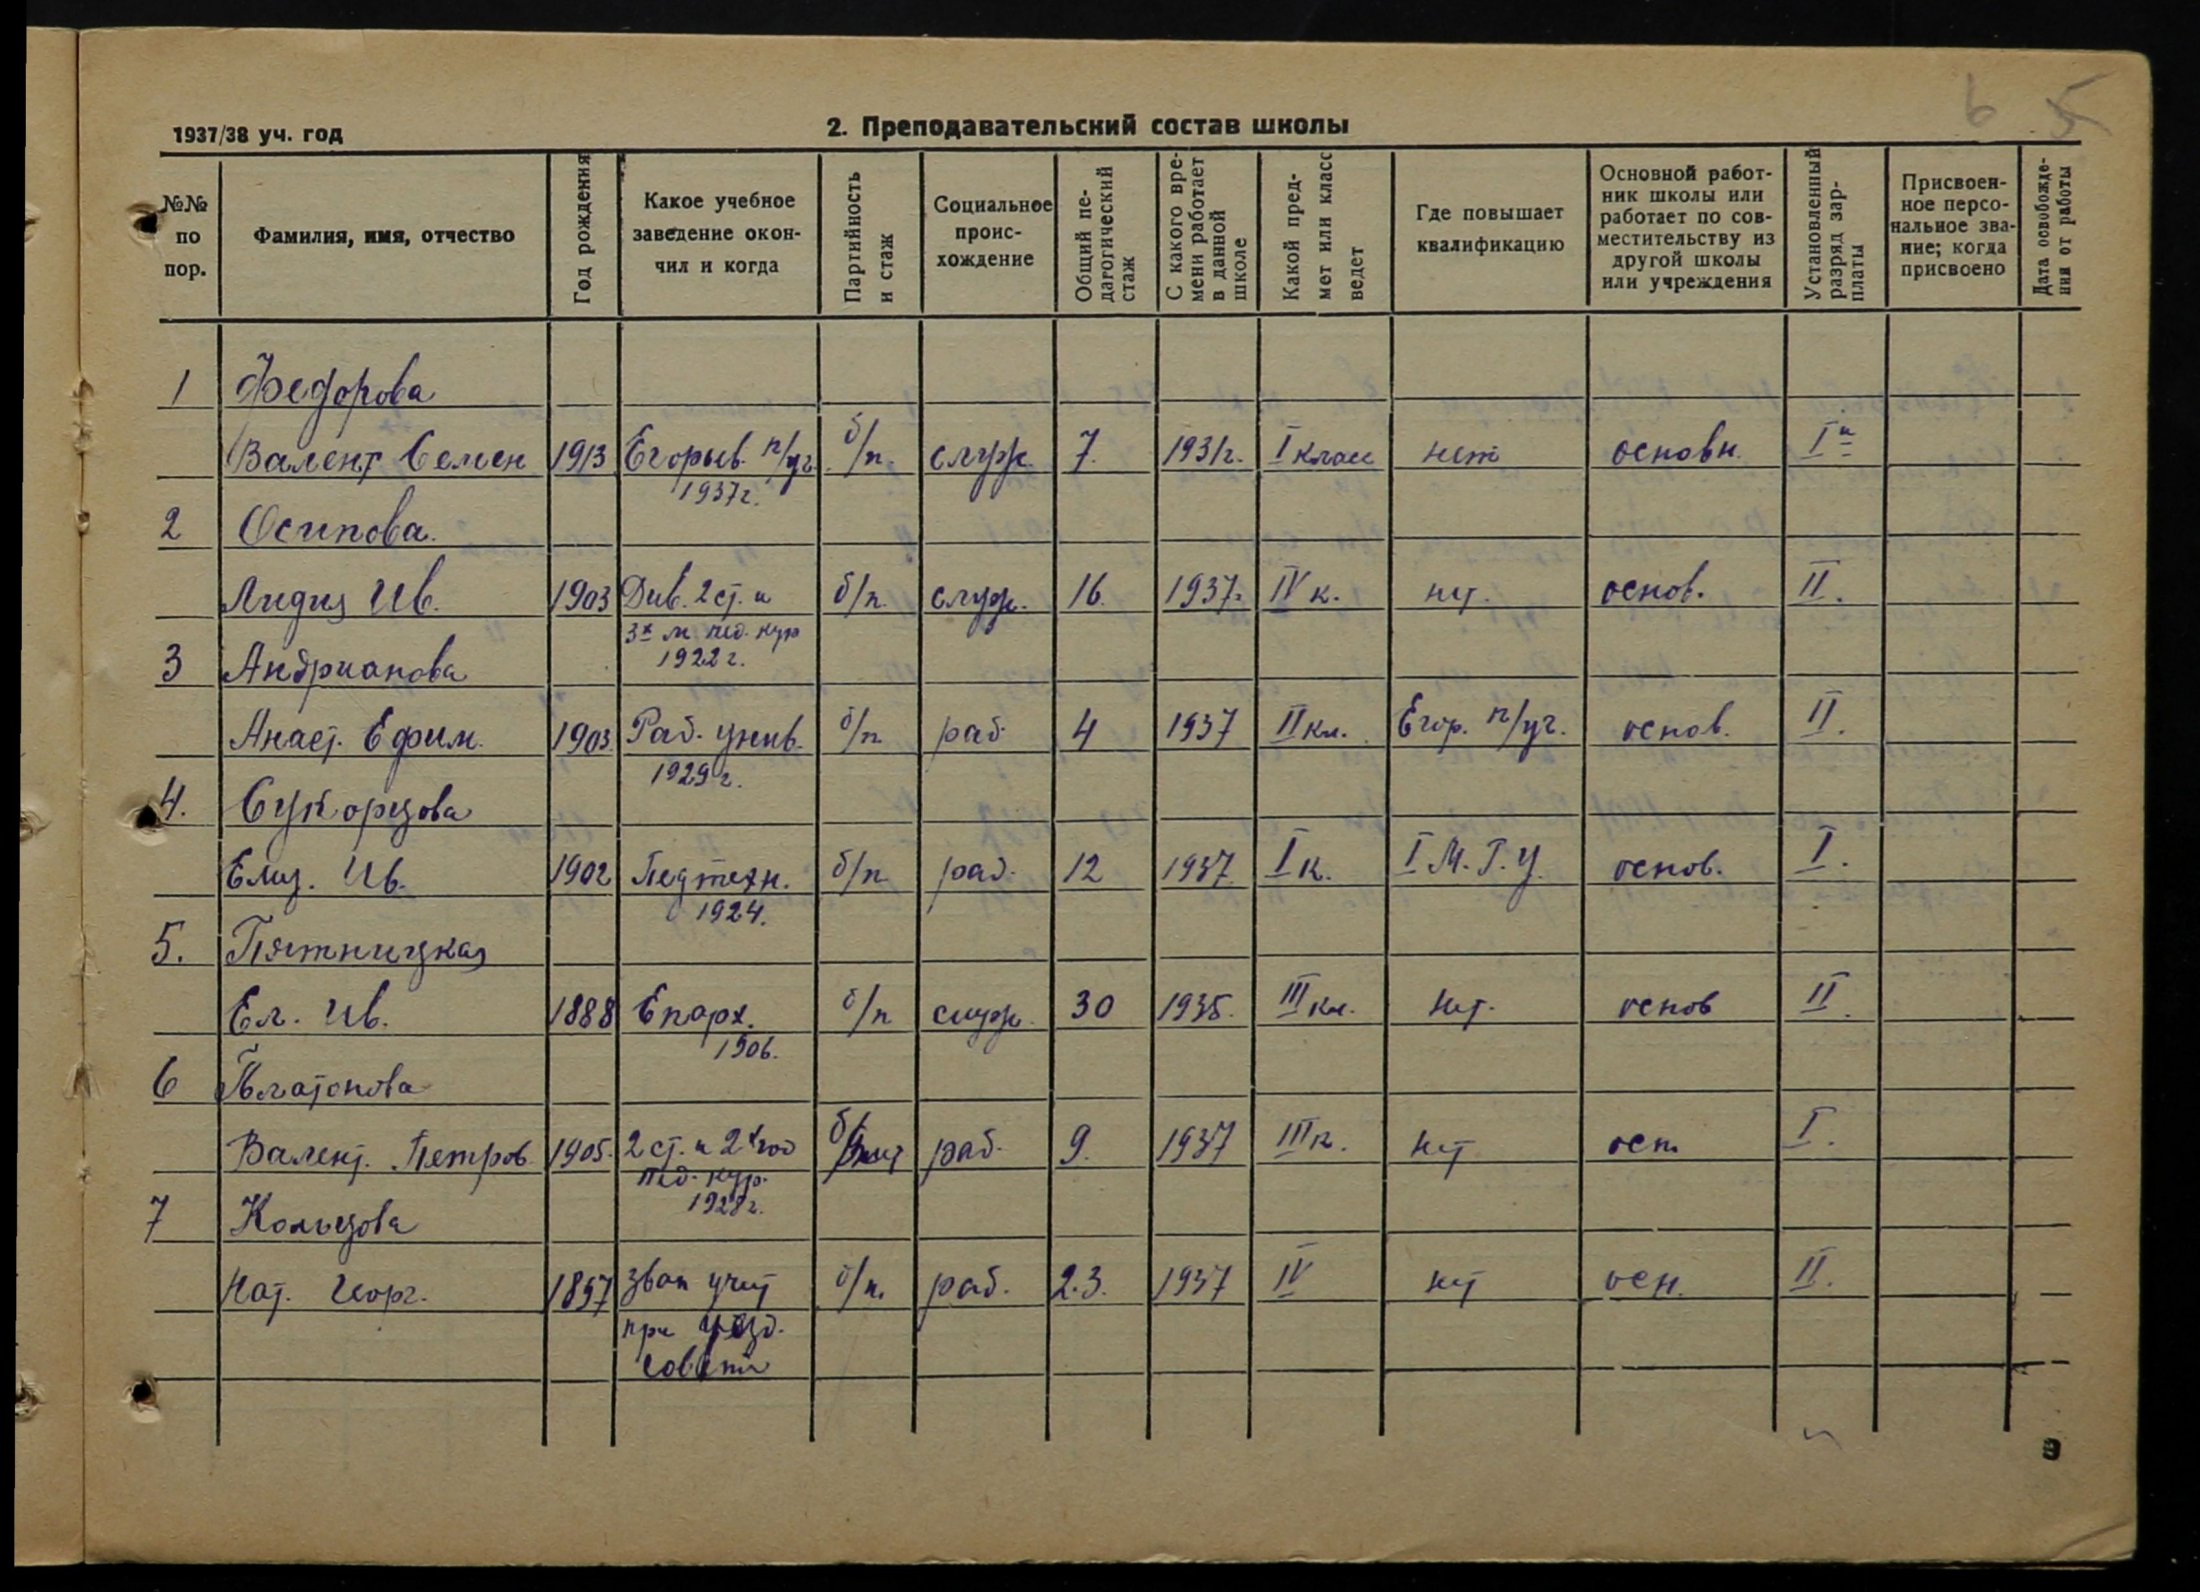 6 5
1937/38 уч. год
2. Преподавательский состав школы
№№ по пор.
Фамилия, имя, отчество
Год рождения
Какое учебное заведение окончил и когда
Партийность и стаж
Социальное проис-хождение
Общий пе-дагогический стаж
С какого вре-мени работает в данной школе
Какой пред-мет или класс ведет
Где повышает квалификацию
Основной работ-ник школы или работает по сов-местительству из другой школы или учреждения
Установленный разряд зар-платы
Присвоен-ное персо-нальное зва-ние; когда присвоено
Дата освобожде-ния от работы
1 Федорова
Валент Семен 1913 Егорьев. п/уч. б/п. служ. 7. 1931г. I класс нет основн. I
1937г.
2 Осипова.
Лидия Ив. 1903 Див. 2 ст. и б/п. служ. 16. 1937г. IV к. нет. основ. II.
3х м пед. кур
1922 г.
3 Андрианова
Анаст. Ефим. 1903. Раб. унив. б/п раб. 4 1937 II кл. Егор. п/уч. основ. II.
1929 г.
4. Сукорцова
Елиз. Ив. 1902 Педтехн. б/п раб. 12 1937. I к. I М.Г.У. основ. I.
1924.
5. Пятницкая
Ел. Ив. 1888 Епарх. б/п служ. 30 1935. III кл. нет. основ II.
1906.
6 Платонова
Валент. Петров 1905. 2 ст. и 2х год раб. 9. 1937 III к. нет осн. I.
пед. кур.
1928г.
7 Кольцова
Нат. Георг. 1897 зван учит б/п. раб. 2.3. 1937 IV нет осн. II.
при уезд.
совете